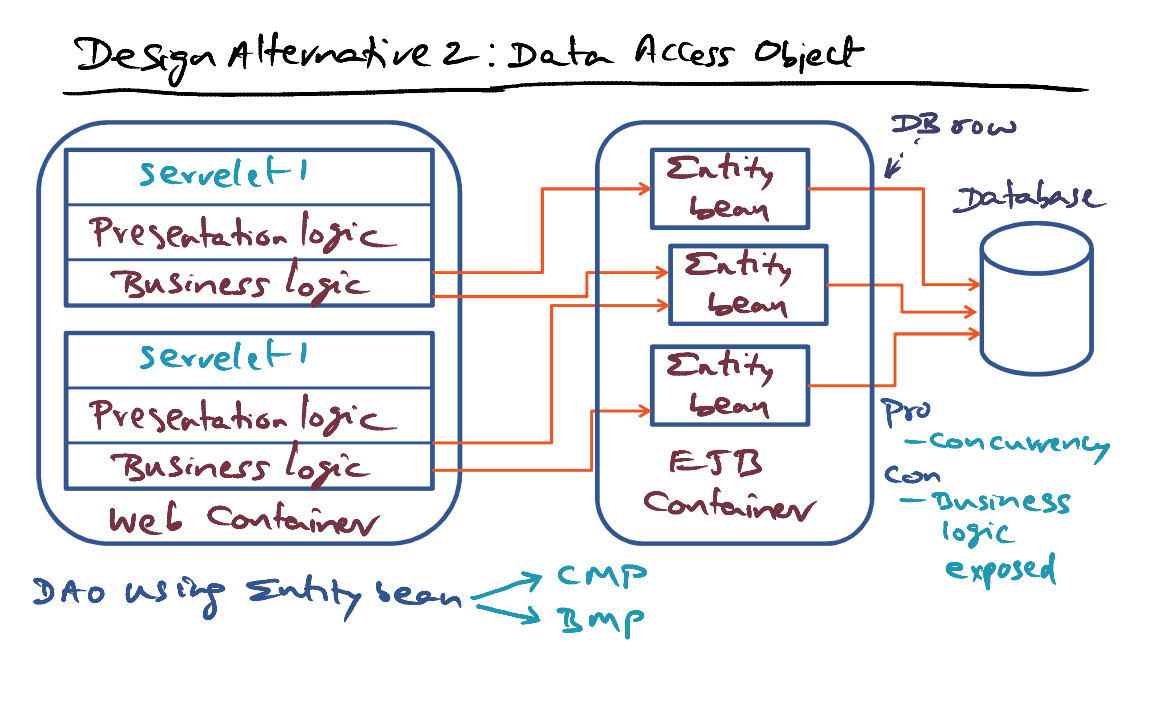 Design Alternative 2: Data Access Object
servelet1
Presentation logic
Business logic
servelet1
Presentation logic
Business logic
Web Container
Entity
bean
Entity
bean
Entity
bean
EJB
Container
DB row
Database
Pro
- Concurrency
Con
- Business
logic
exposed
DAO using Entity bean
CMP
BMP